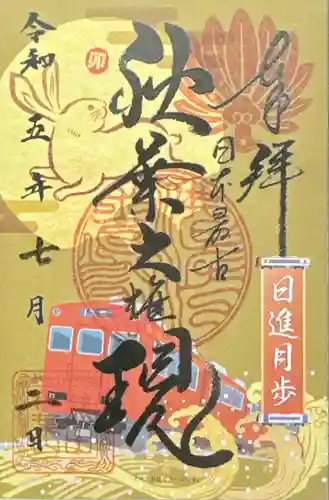 奉拝
日本最古
秋葉大権現
令和五年七月二日
日進月歩
卯